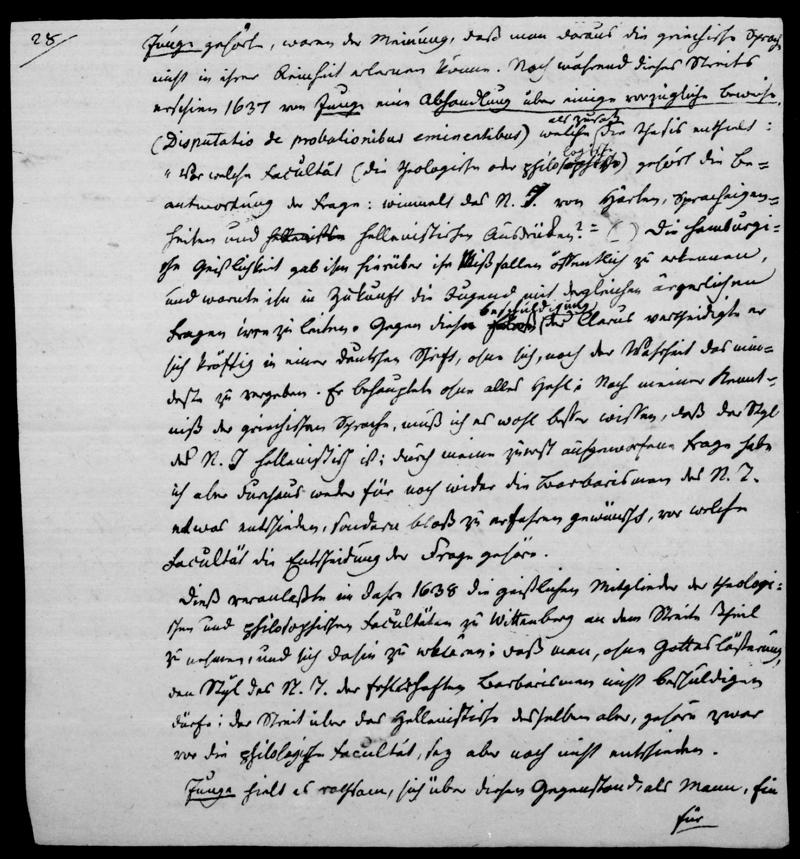 28/
Junge gehörte, waren der Meinung, daß man daraus die griechische Sprache
nicht in ihrer Reinheit erlernen könne. Noch während dieses Streits
erschien 1637 von Junge eine Abhandlung über einige vorzügliche Beweise,
(Disputatio de probationibus eminentibus) welche die Thesis enthielt:
"Vor welche Facultät (die theologische oder philologische) gehört die Be=
antwortung der Frage: wimmelt das N. T. von Härten, Spracheigen=
heiten und hellenistischen Ausdrücken?" ( ) Die hamburgi=
sche Geistlichkeit gab ihm hierüber ihr Mißfallen öffentlich zu erkennen,
und warnte ihn in Zukunft die Jugend mit dergleichen ärgerlichen
Fragen irre zu leiten. Gegen diese Beschuldigung der Clerus vertheidigte er
sich kräftig in einer deutschen Schrift, ohne sich, noch der Wahrheit das min=
deste zu vergeben. Er behauptete ohne alles Hehl: Nach meiner Kennt=
niß der griechischen Sprache, muß ich es wohl besser wissen, daß der Styl
des N. T hellenistisch ist; durch meine zuerst aufgeworfene Frage habe
ich aber durchaus weder für noch wider die Barbarismen des N. T.
etwas entschieden, sondern bloß zu erfahren gewünscht, vor welche
Facultät die Entscheidung der Frage gehöre.
Dieß veranlaßte im Jahre 1638 die geistlichen Mitglieder der theologi=
schen und philosophischen Facultäten zu Wittenberg an dem Streite Theil
zu nehmen, und sich dahin zu erklären: daß man, ohne Gotteslästerung,
den Styl des N. T. der fehlerhaften Barbarismen nicht beschuldigen
dürfe; der Streit über das Hellenistische desselben aber, gehöre zwar
vor die philologische Facultät, sey aber noch nicht entschieden.
Junge hielt es rathsam, sich über diesen Gegenstand, als Mann, hin
für